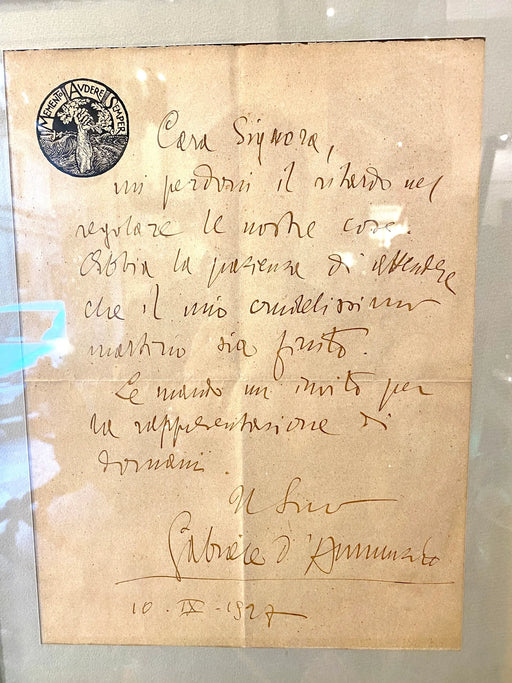 MEMENTO AVDERE SEMPER
Cara Signora,
mi perdoni il ritardo nel
regolare le nostre cose.
Abbia la pazienza di attendere
che il mio crudelissimo
martirio sia finito.
Le mando un invito per
la rappresentazione di
domani.
Il Suo
Gabriele d'Annunzio
10 · IX · 1927